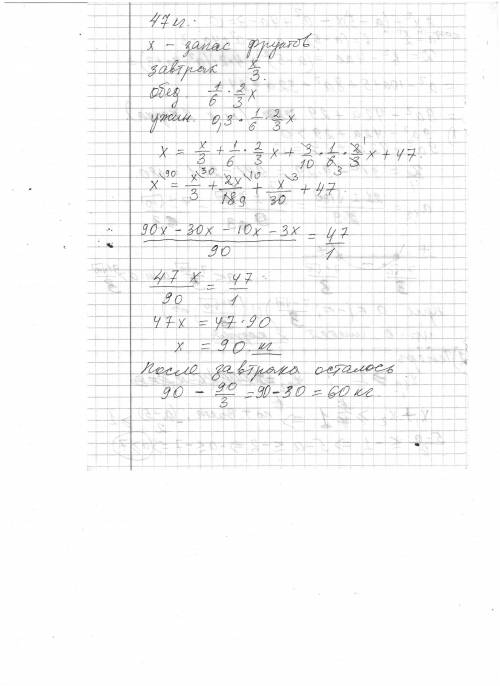 47 кг.
x – запас фруктов
завтрак x/3.
обед 1/6 · 2/3 x
ужин 0,3 · 1/6 · 2/3 x
x = x/3 + 1/6 · 2/3 x + 3/10 · 1/6 · 2/3 x + 47
x = x/3 + 2x/18 9 + x/30 + 47
90x – 30x – 10x – 3x / 90 = 47/1
47x/90 = 47/1
47x = 47 · 90
x = 90 кг
После завтрака осталось
90 – 90/3 = 90 – 30 = 60 кг